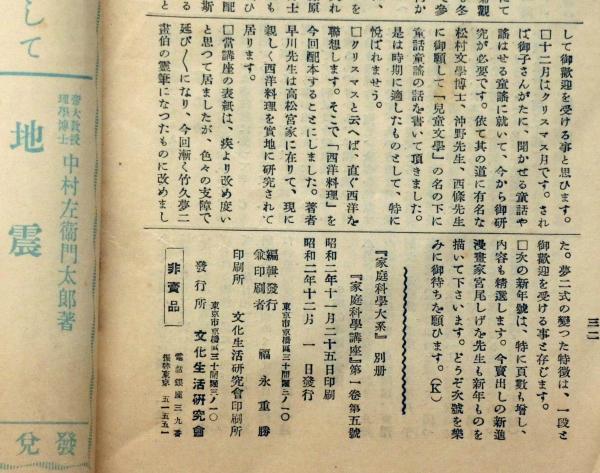 して御歡迎を受ける事と思ひます。
□十二月はクリスマス月です。され
ば御子さんがたに、聞かせる童話や
謠はせる童謠に就いて、今から御研
究が必要です。依て其の道に有名な
松村文學博士、沖野先生、西條先生
に御願して『兒童文學』の名の下に
童話童謠の話を書いて頂きました。
是は時期に適したものとして、特に
悅ばれませう。
□クリスマスと云へば、直ぐ西洋を
聯想します。そこで『西洋料理』を
今回配本することにしました。著者
早川先生は高松宮家に在りて、現に
親しく西洋料理を實地に硏究されて
居ります。
□當講座の表紙は、疾より改め度い
と思つて居ましたが、色々の支障で
延び〱になり、今回漸く竹久夢二
畫伯の靈筆になつたものに改めまし
た。夢二式の變つた特徴は、一段と
御歡迎を受ける事と存じます。
□次の新年號は、特に頁數も增し、
內容も精選します。今賣出しの新進
漫畫家宮尾しげを先生も新年ものを
描いて下さいます。どうぞ次號を樂
みに御待ちを願ひます。(K)
三二
『家庭科學大系』別册
『家庭科學講座』第一卷第五號
昭和二年十一月二十五日印刷
昭和二年十二月一日發行
東京市京橋區三十間堀三ノ一〇
編輯發行兼印刷者 福永重勝
印刷所 文化生活硏究會印刷所
東京市京橋區三十間堀三ノ一〇
發行所 文化生活硏究會
電話銀座三九番
振替東京五一五五一
非賣品
して
帝大敎授
理學博士
中村左衞門太郎著
地震
發兌